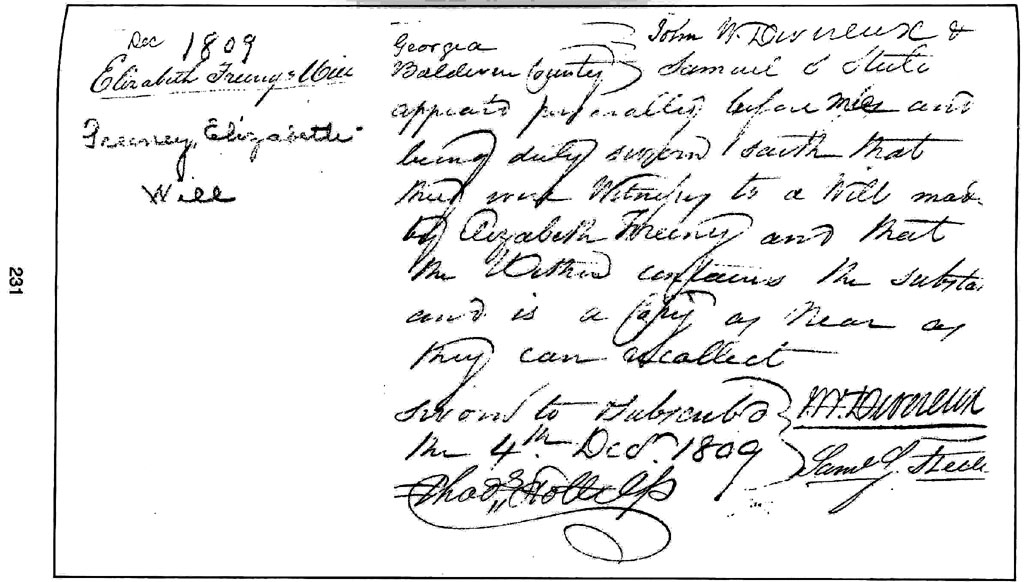 Dec 1809
Elizabeth Freeny's Will
Freeney, Elizabeth
Will
231
Georgia
Baldwin County
John W. Devereux &
Samuel S Steele
appeard personally before me and
being duly sworn saith that
they were Witnesses to a Will made
by Elizabeth Freeny and that
the Within contains the substa
and is a Copy as Near as
they can recollect
Sworn to & Subscribd
the 4th Decr. 1809
J.W. Devereux
Saml Steele